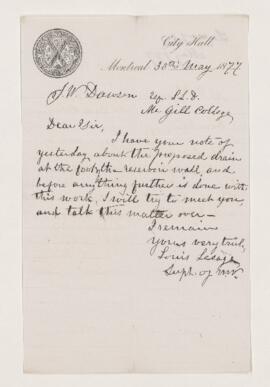 City Hall,
Montreal 30th May 1877
J W Dawson Esq. L.L.D.
Mc Gill College
Dear Sir,
I have your note of
yesterday about the proposed drain
at the foot of the reservoir wall, and
before anything further is done with
this work, I will try to meet you,
and talk this matter over –
I remain
Yours very truly,
Louis Lesage
Supt. of